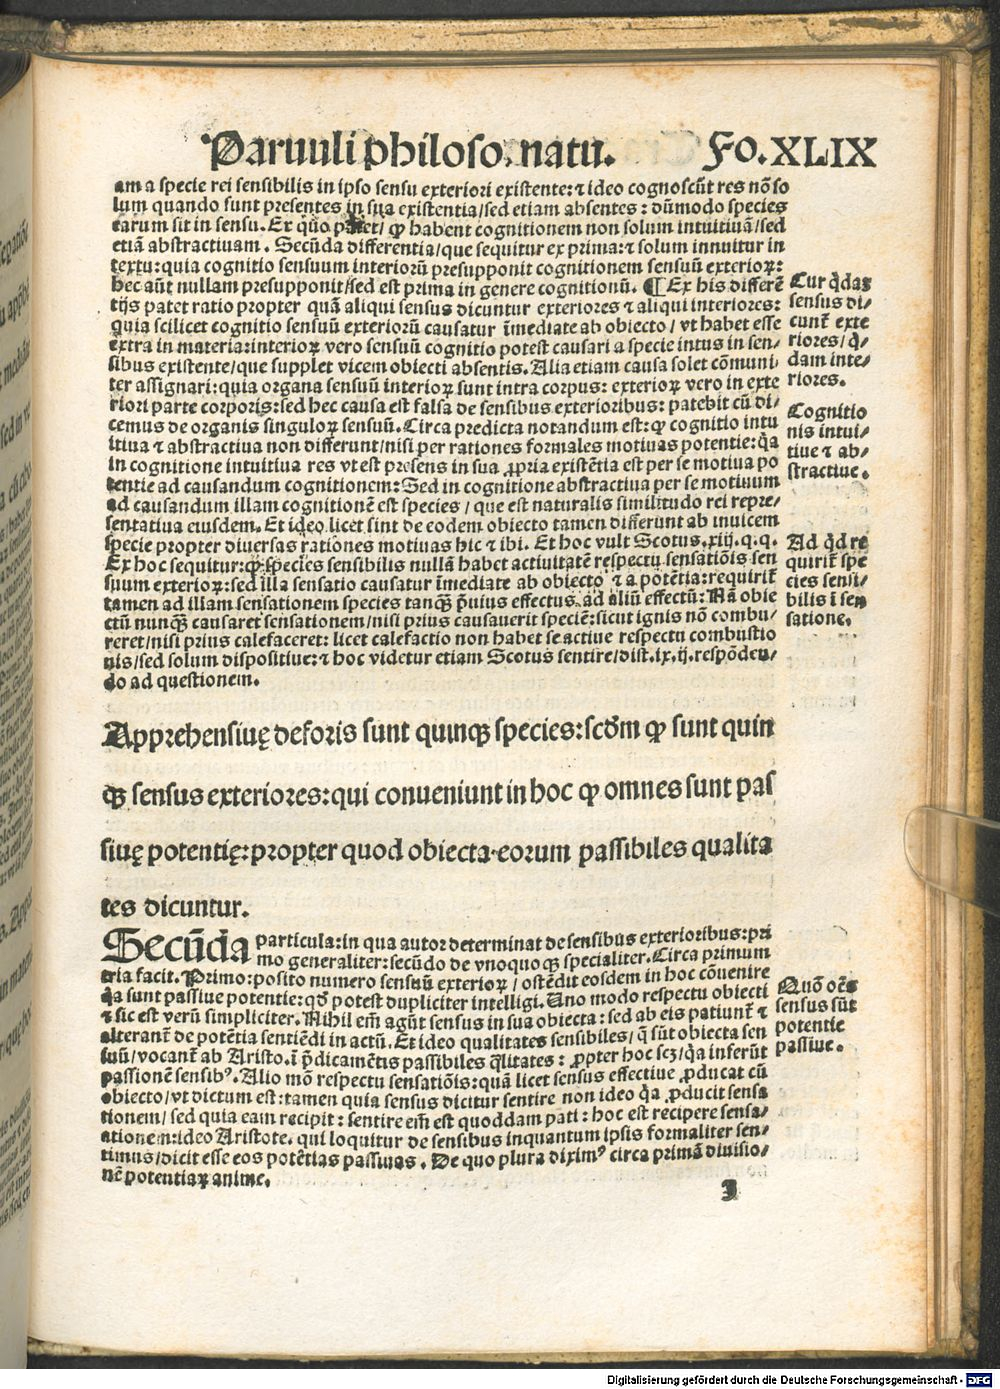 Paruuli philoso. natu. Fo. XLIX
am a specie rei sensibilis in ipso sensu exteriori existente: ⁊ ideo cognoscūt res nō so
lum quando sunt presentes in sua existentia/ sed etiam absentes: dūmodo species
earum sit in sensu. Ex q̄uo patet/ ꝙ habent cognitionem non solum intuitiuā/ sed
etiā abstractiuam. Secūda differentia/ que sequitur ex prima: ⁊ solum innuitur in
textu: quia cognitio sensuum interiorū presupponit cognitionem sensuū exterioꝝ:
hec aūt nullam presupponit/ sed est prima in genere cognitionū. ¶ Ex his differē
tijs patet ratio propter quā aliqui sensus dicuntur exteriores ⁊ aliqui interiores:
quia scilicet cognitio sensuū exteriorū causatur īmediate ab obiecto/ vt habet esse
extra in materia: interioꝝ vero sensuū cognitio potest causari a specie intus in sen⸗
sibus existente/ que supplet vicem obiecti absentis. Alia etiam causa solet cōmuni⸗
ter assignari: quia organa sensuū interioꝝ sunt intra corpus: exterioꝝ vero in exte
riori parte corporis: sed hec causa est falsa de sensibus exterioribus: patebit cū di⸗
cemus de organis singuloꝝ sensuū. Circa predicta notandum est: ꝙ cognitio intu
itiua ⁊ abstractiua non differunt/ nisi per rationes formales motiuas potentie: q̄a
in cognitione intuitiua res vt est presens in sua ꝓpria existētia est per se motiua po
tentie ad causandum cognitionem: Sed in cognitione abstractiua per se motiuum
ad causandum illam cognitionē est species/ que est naturalis similitudo rei repre⸗
sentatiua eiusdem. Et ideo licet sint de eodem obiecto tamen differunt ab inuicem
specie propter diuersas rationes motiuas hic ⁊ ibi. Et hoc vult Scotus. xiij. q. q.
Ex hoc sequitur: ꝙ species sensibilis nullā habet actiuitatē respectu sensatiōis sen
suum exterioꝝ: sed illa sensatio causatur īmediate ab obiecto ⁊ a potētia: requirit̄
tamen ad illam sensationem species tanqꝫ p̄uius effectus ad aliū effectū: Nā obie
ctū nunqꝫ causaret sensationem/ nisi prius causauerit speciē: sicut ignis nō combu⸗
reret/ nisi prius calefaceret: licet calefactio non habet se actiue respectu combustio
nis/ sed solum dispositiue: ⁊ hoc videtur etiam Scotus sentire/ dist. ix. ij. respōden⸗
do ad questionem.
Cur q̄dā
sensus di⸗
cunt̄ exte
riores/ q̄⸗
dam inte⸗
riores.
Cognitio
nis intui⸗
tiue ⁊ ab⸗
stractiue.
Ad q̄d re
quirit̄ spe
cies sensi⸗
bilis ī sen
satione.
Apprehensiuę deforis sunt quinqꝫ species: scd̄m ꝙ sunt quin
qꝫ sensus exteriores: qui conueniunt in hoc ꝙ omnes sunt pas
siuę potentię: propter quod obiecta eorum passibiles qualita
tes dicuntur.
Secūda particula: in qua autor determinat de sensibus exterioribus: pri
mo generaliter: secūdo de vnoquoqꝫ specialiter. Circa primum
tria facit. Primo: posito numero sensuū exterioꝝ/ ostēdit eosdem in hoc cōuenire
q̄a sunt passiue potentie: qd̄ potest dupliciter intelligi. Uno modo respectu obiecti
⁊ sic est verū simpliciter. Nihil em̄ agūt sensus in sua obiecta: sed ab eis patiunt̄ ⁊
alterant̄ de potētia sentiēdi in actū. Et ideo qualitates sensibiles/ q̄ sūt obiecta sen
suū/ vocant̄ ab Aristo. ī p̄dicamētis passibiles q̄litates: ꝓpter hoc scꝫ/ q̄a inferūt
passionē sensibꝰ. Alio mō respectu sensatiōis: quā licet sensus effectiue ꝓducat cū
obiecto/ vt dictum est: tamen quia sensus dicitur sentire non ideo q̄a ꝓducit sensa
tionem/ sed quia eam recipit: sentire em̄ est quoddam pati: hoc est recipere sensa⸗
ationem: ideo Aristote. qui loquitur de sensibus inquantum ipsis formaliter sen⸗
timus/ dicit esse eos potētias passiuas. De quo plura diximꝰ circa primā diuisio⸗
nē potentiaꝝ anime.
Quō oēs
sensus sūt
potentie
passiue.
Digitalisierung gefördert durch die Deutsche Forschungsgemeinschaft - DFG